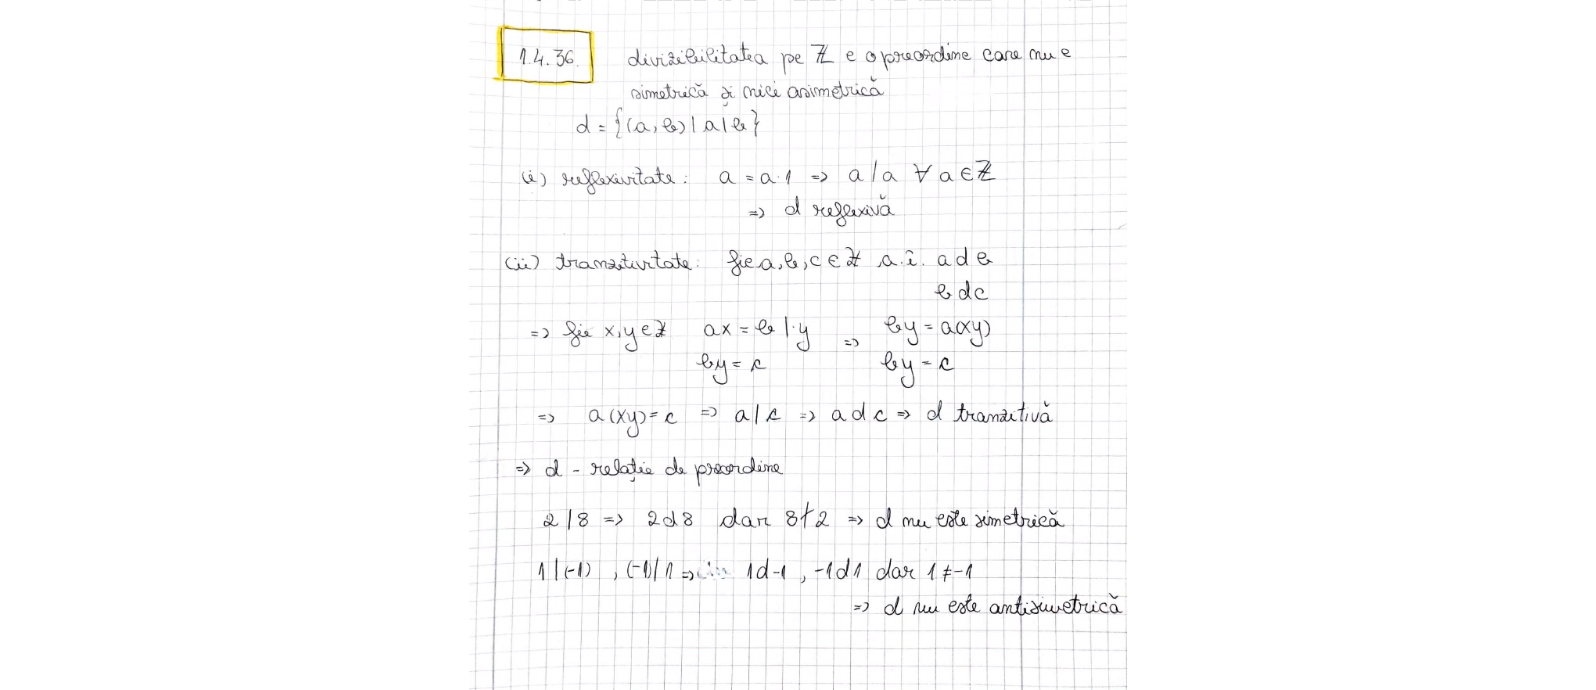 1.4.36. divizibilitatea pe ℤ e o preordine care nu e
simetrică și nici asimetrică
d = {(a, b) | a | b}
(i) reflexivitate: a = a·1 => a/a ∀ a ∈ ℤ
=> d reflexivă
(ii) tranzitivitate: fie a, b, c ∈ ℤ a.î. a d b
b d c
=> fie x, y ∈ ℤ ax = b |·y => by = a(xy)
by = c by = c
=> a(xy) = c => a/c => a d c => d tranzitivă
=> d - relație de preordine
2/8 => 2d8 dar 8∤2 => d nu este simetrică
1/(-1), (-1)/1 => 1d-1, -1d1 dar 1≠-1
=> d nu este antisimetrică